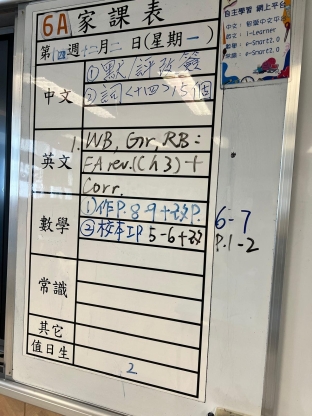 6A 家課表
第 週十二月二日(星期一)
自主學習 網上平台
英文: i-Learner
數學: e-Smart2.0
常識: e-Smart2.0
中文
① 默(八)評改簽
② 詞(十四)抄5個
英文
1. WB, Grr, RB:
EA rev.(Ch3)+
Corr.
數學
①作P.8-9+改P.6-7
②校本工P5-6+改P.1-2
常識
其它
值日生
2